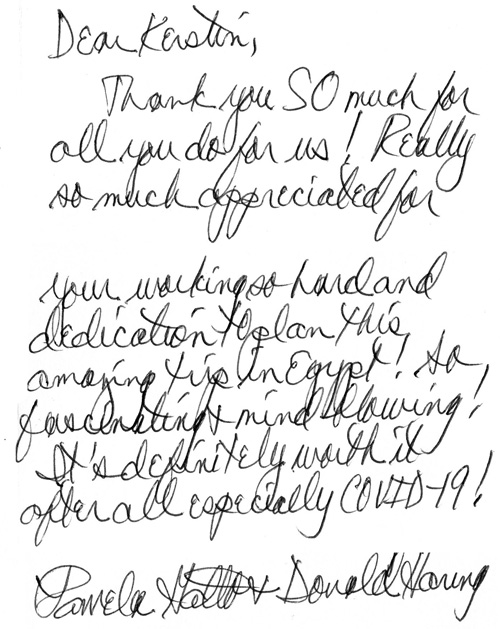 Dear Kerstin,
Thank you SO much for
all you do for us! Really
so much appreciated for
your working so hard and
dedication to plan this
amazing trip in Egypt! So,
fascinating & mind blowing!
It's definitely worth it
after all especially COVID-19!
Pamela & Donald Haring